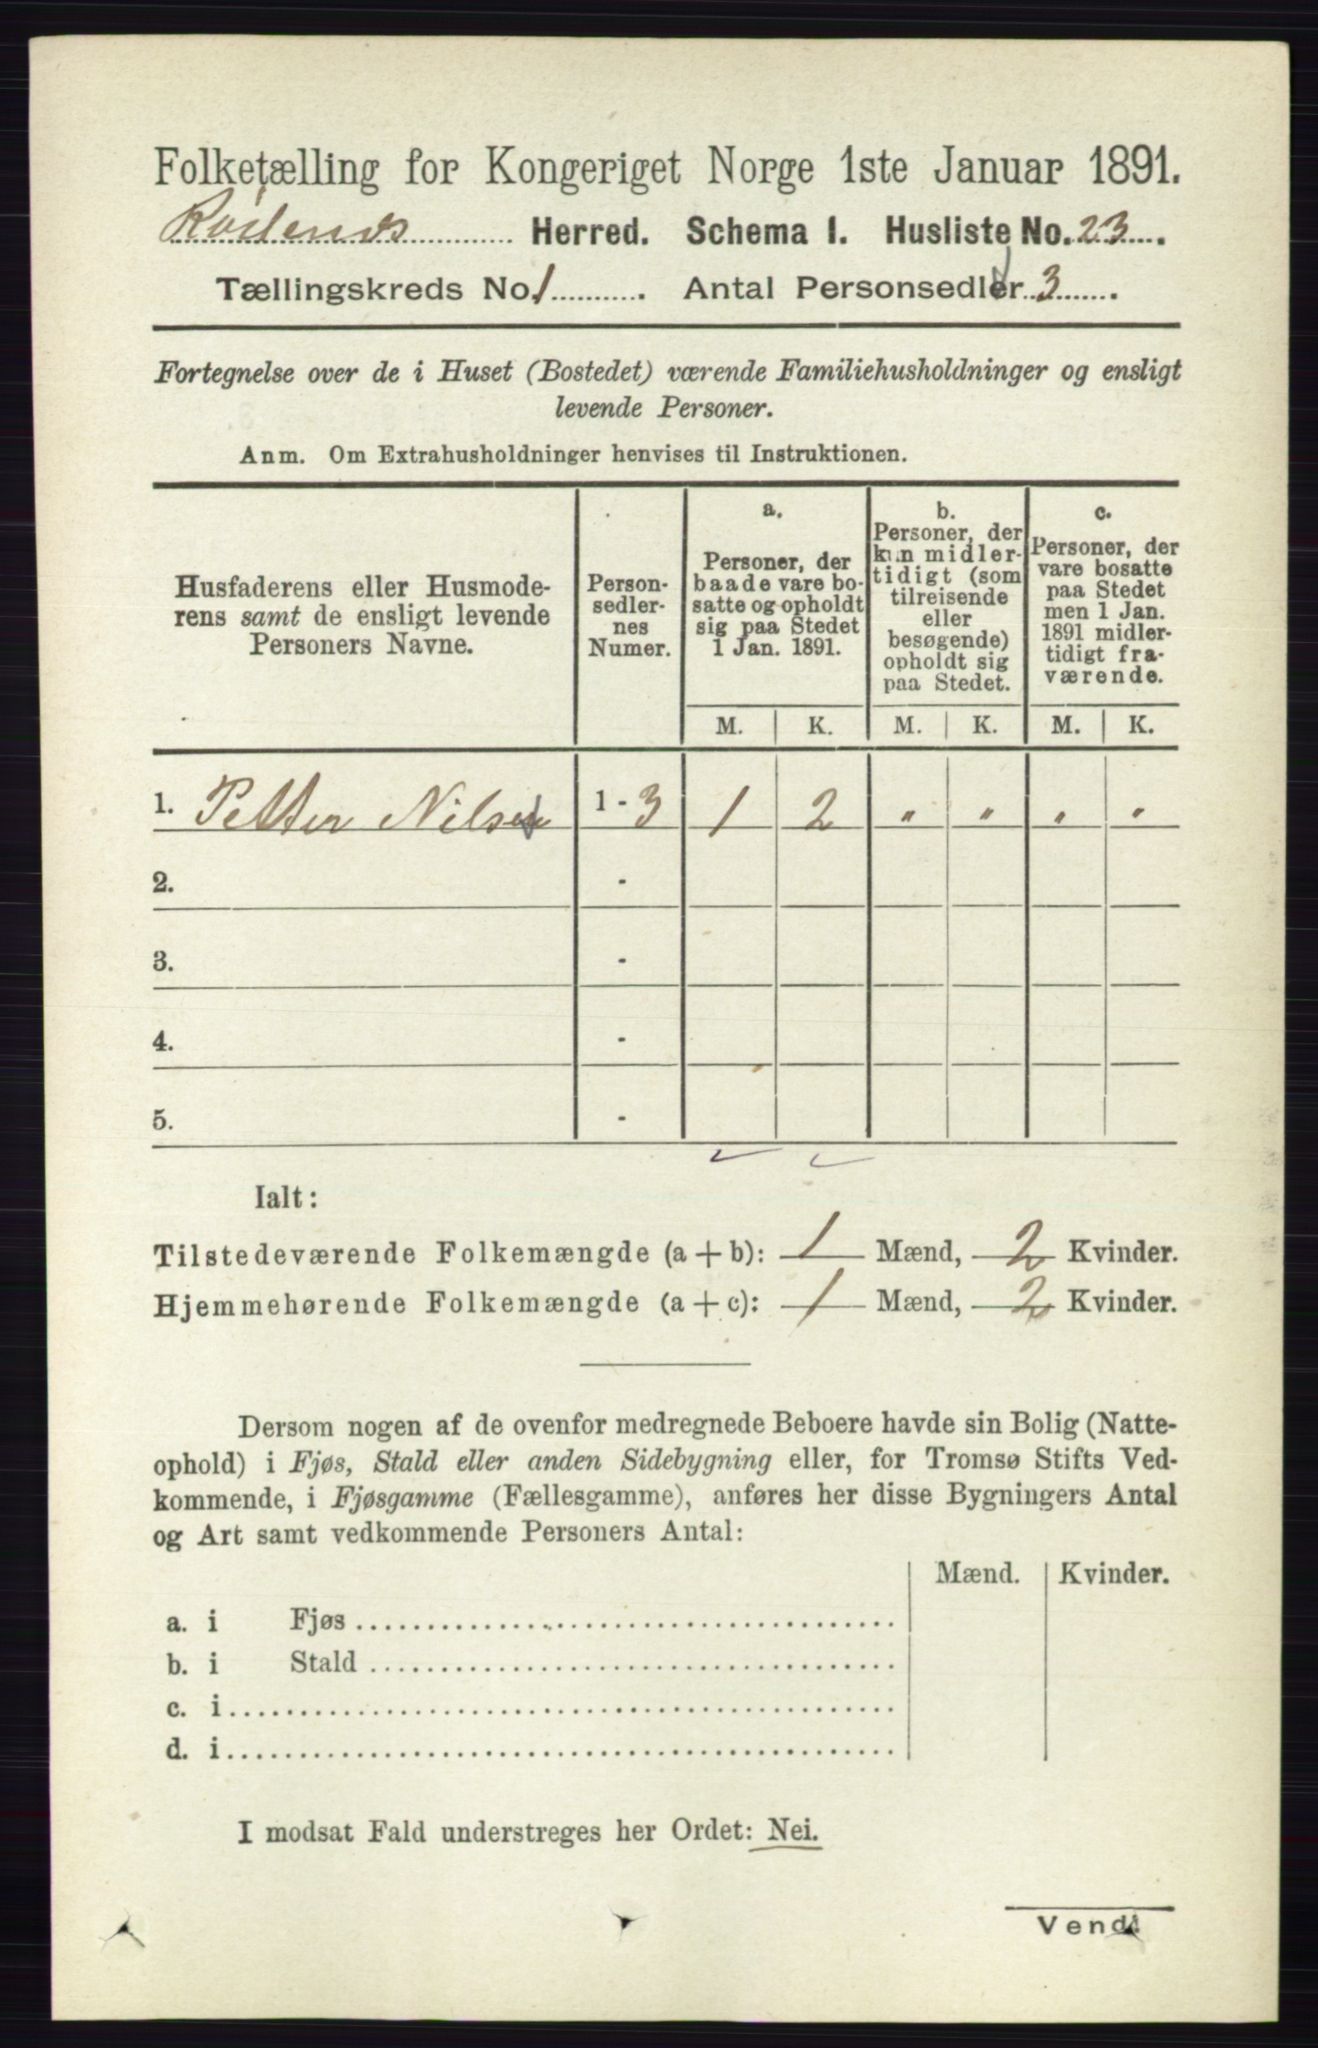 Folketælling for Kongeriget Norge 1ste Januar 1891.
Rödenes Herred. Schema I. Husliste No. 23.
Tællingskreds No. 1. Antal Personsedler 3.
Fortegnelse over de i Huset (Bostedet) værende Familiehusholdninger og ensligt
levende Personer.
Anm. Om Extrahusholdninger henvises til Instruktionen.
Husfaderens eller Husmode-
rens samt de ensligt levende
Personers Navne.
Person-
sedler-
nes
Numer.
a.
Personer, der
baade vare bo-
satte og opholdt
sig paa Stedet
1 Jan. 1891.
b.
Personer, der
kun midler-
tidigt (som
tilreisende
eller
besøgende)
opholdt sig
paa Stedet.
c.
Personer, der
vare bosatte
paa Stedet
men 1 Jan.
1891 midler-
tidigt fra-
værende.
M. K. M. K. M. K.
1. Petter Nilsen 1 - 3 1 2 " " " "
2. -
3. -
4. -
5. -
Ialt:
Tilstedeværende Folkemængde (a + b): 1 Mænd, 2 Kvinder.
Hjemmehørende Folkemængde (a + c): 1 Mænd, 2 Kvinder.
Dersom nogen af de ovenfor medregnede Beboere havde sin Bolig (Natte-
ophold) i Fjøs, Stald eller anden Sidebygning eller, for Tromsø Stifts Ved-
kommende, i Fjøsgamme (Fællesgamme), anføres her disse Bygningers Antal
og Art samt vedkommende Personers Antal:
Mænd. Kvinder.
a. i Fjøs
b. i Stald
c. i
d. i
I modsat Fald understreges her Ordet: Nei.
Vend!